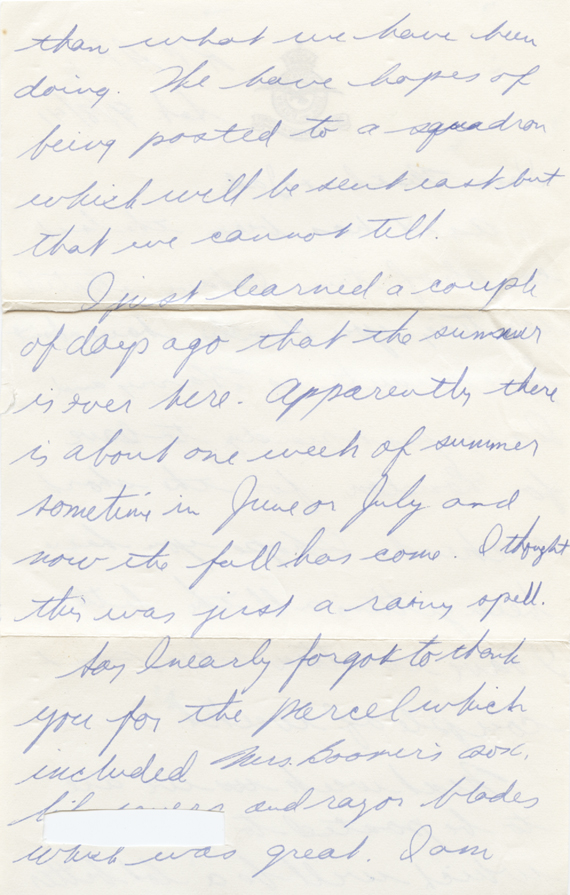 than what we have been
doing. We have hopes of
being posted to a squadron
which will be sent east but
that we cannot tell.
I just learned a couple
of days ago that the summer
is over here. Apparently there
is about one week of summer
sometime in June or July and
now the fall has come. I thought
this was just a rainy spell.
Say I nearly forgot to thank
you for the parcel which
included Mrs. Boomer's sox,
and razor blades
which was great. I am